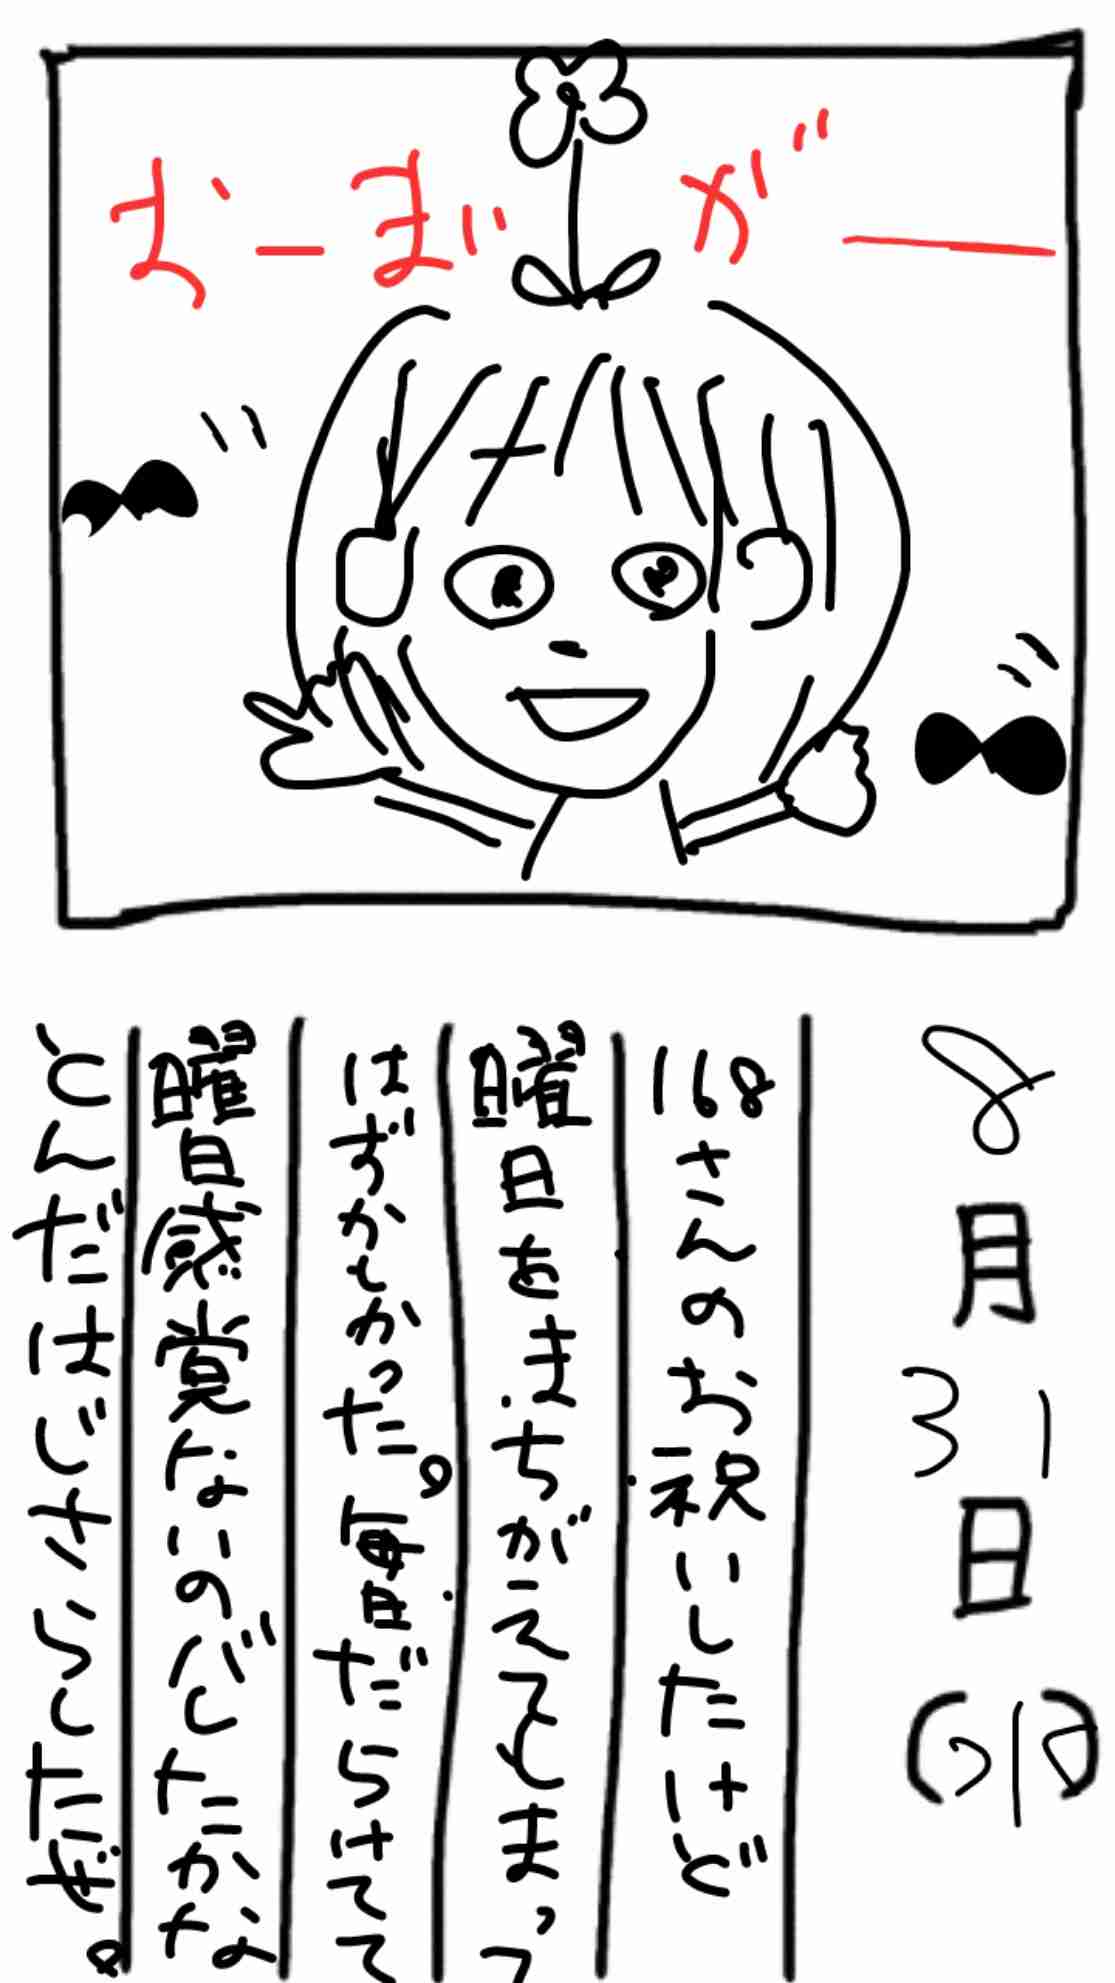 むーまいがー
8月31日
168さんのお祝いしたけど
曜日をまちがえてしまって
はずかしかった。毎日だらけてて
曜日感覚ないのバレたかな
とんだはじさらしだぜ。